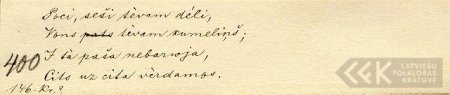 Poci, seši tēvam dēli,
Vons pats tēvam kumeliņš;
400 I tā paša nebarwoja,
Cits uz cita vērdamos.
146. Kr. 2
LATVIEŠU
FOLKLORAS
KRĀTUVE